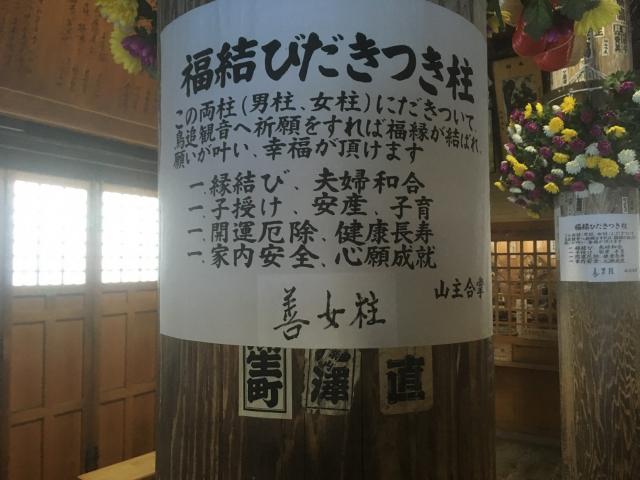 福結びだきつき柱
この両柱(男柱、女柱)にだきついて、
鳥追観音へ祈願をすれば福縁が結ばれ、
願いが叶い、幸福が頂けます
一、縁結び、夫婦和合
一、子授け、安産、子育
一、開運厄除、健康長寿
一、家内安全、心願成就
山主合掌
善女柱
生町
澤
直
福結びだきつき柱